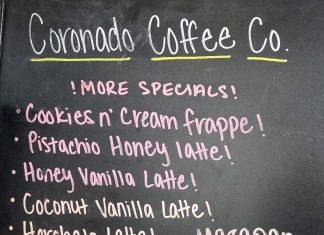 Coronado Coffee Co.
!MORE SPECIALS!
• Cookies n' Cream frappe!
• Pistachio Honey latte!
• Honey Vanilla Latte!
• Coconut Vanilla Latte!
Latte!